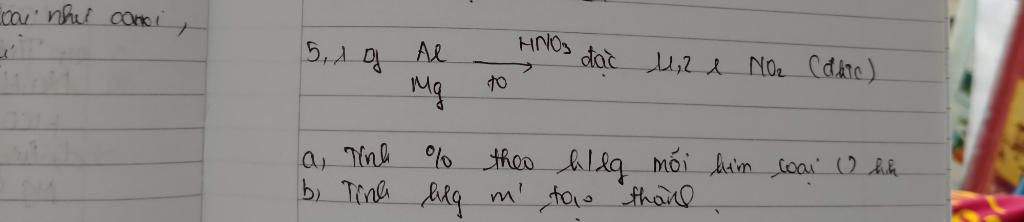 loại như
5,1 g Al HNO3 đặc 11,2 l NO2 (đktc)
Mg to
a, Tính % theo klg mỗi kim loại () hh
b, Tính klg m' tạo thành